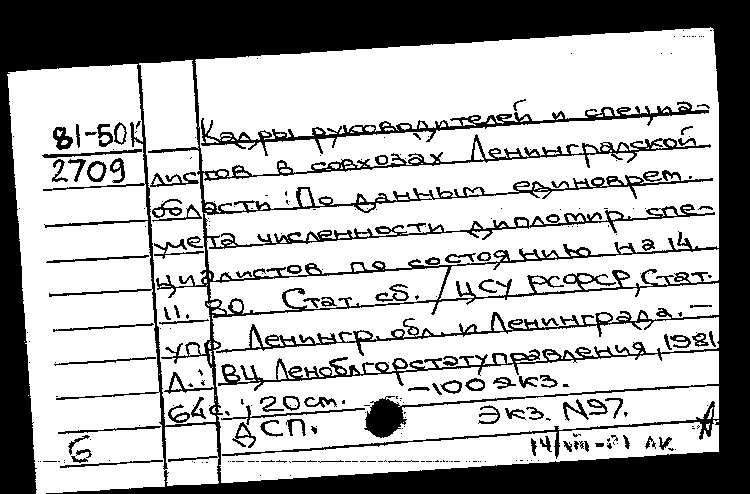 81-50К Кадры руководителей и специа-
2709 листов в совхозах Ленинградской
области: По данным единоврем.
учета численности дипломир. спе-
циалистов по состоянию на 14.
11. 80. Стат. сб. / ЦСУ РСФСР, Стат.
упр. Ленингр. обл. и Ленинграда. –
Л.: ВЦ Леноблгорстатуправления, 1981.
64с.; 20см. –100 экз.
ДСП. Экз. N97.
б 14/VIII-81 АК